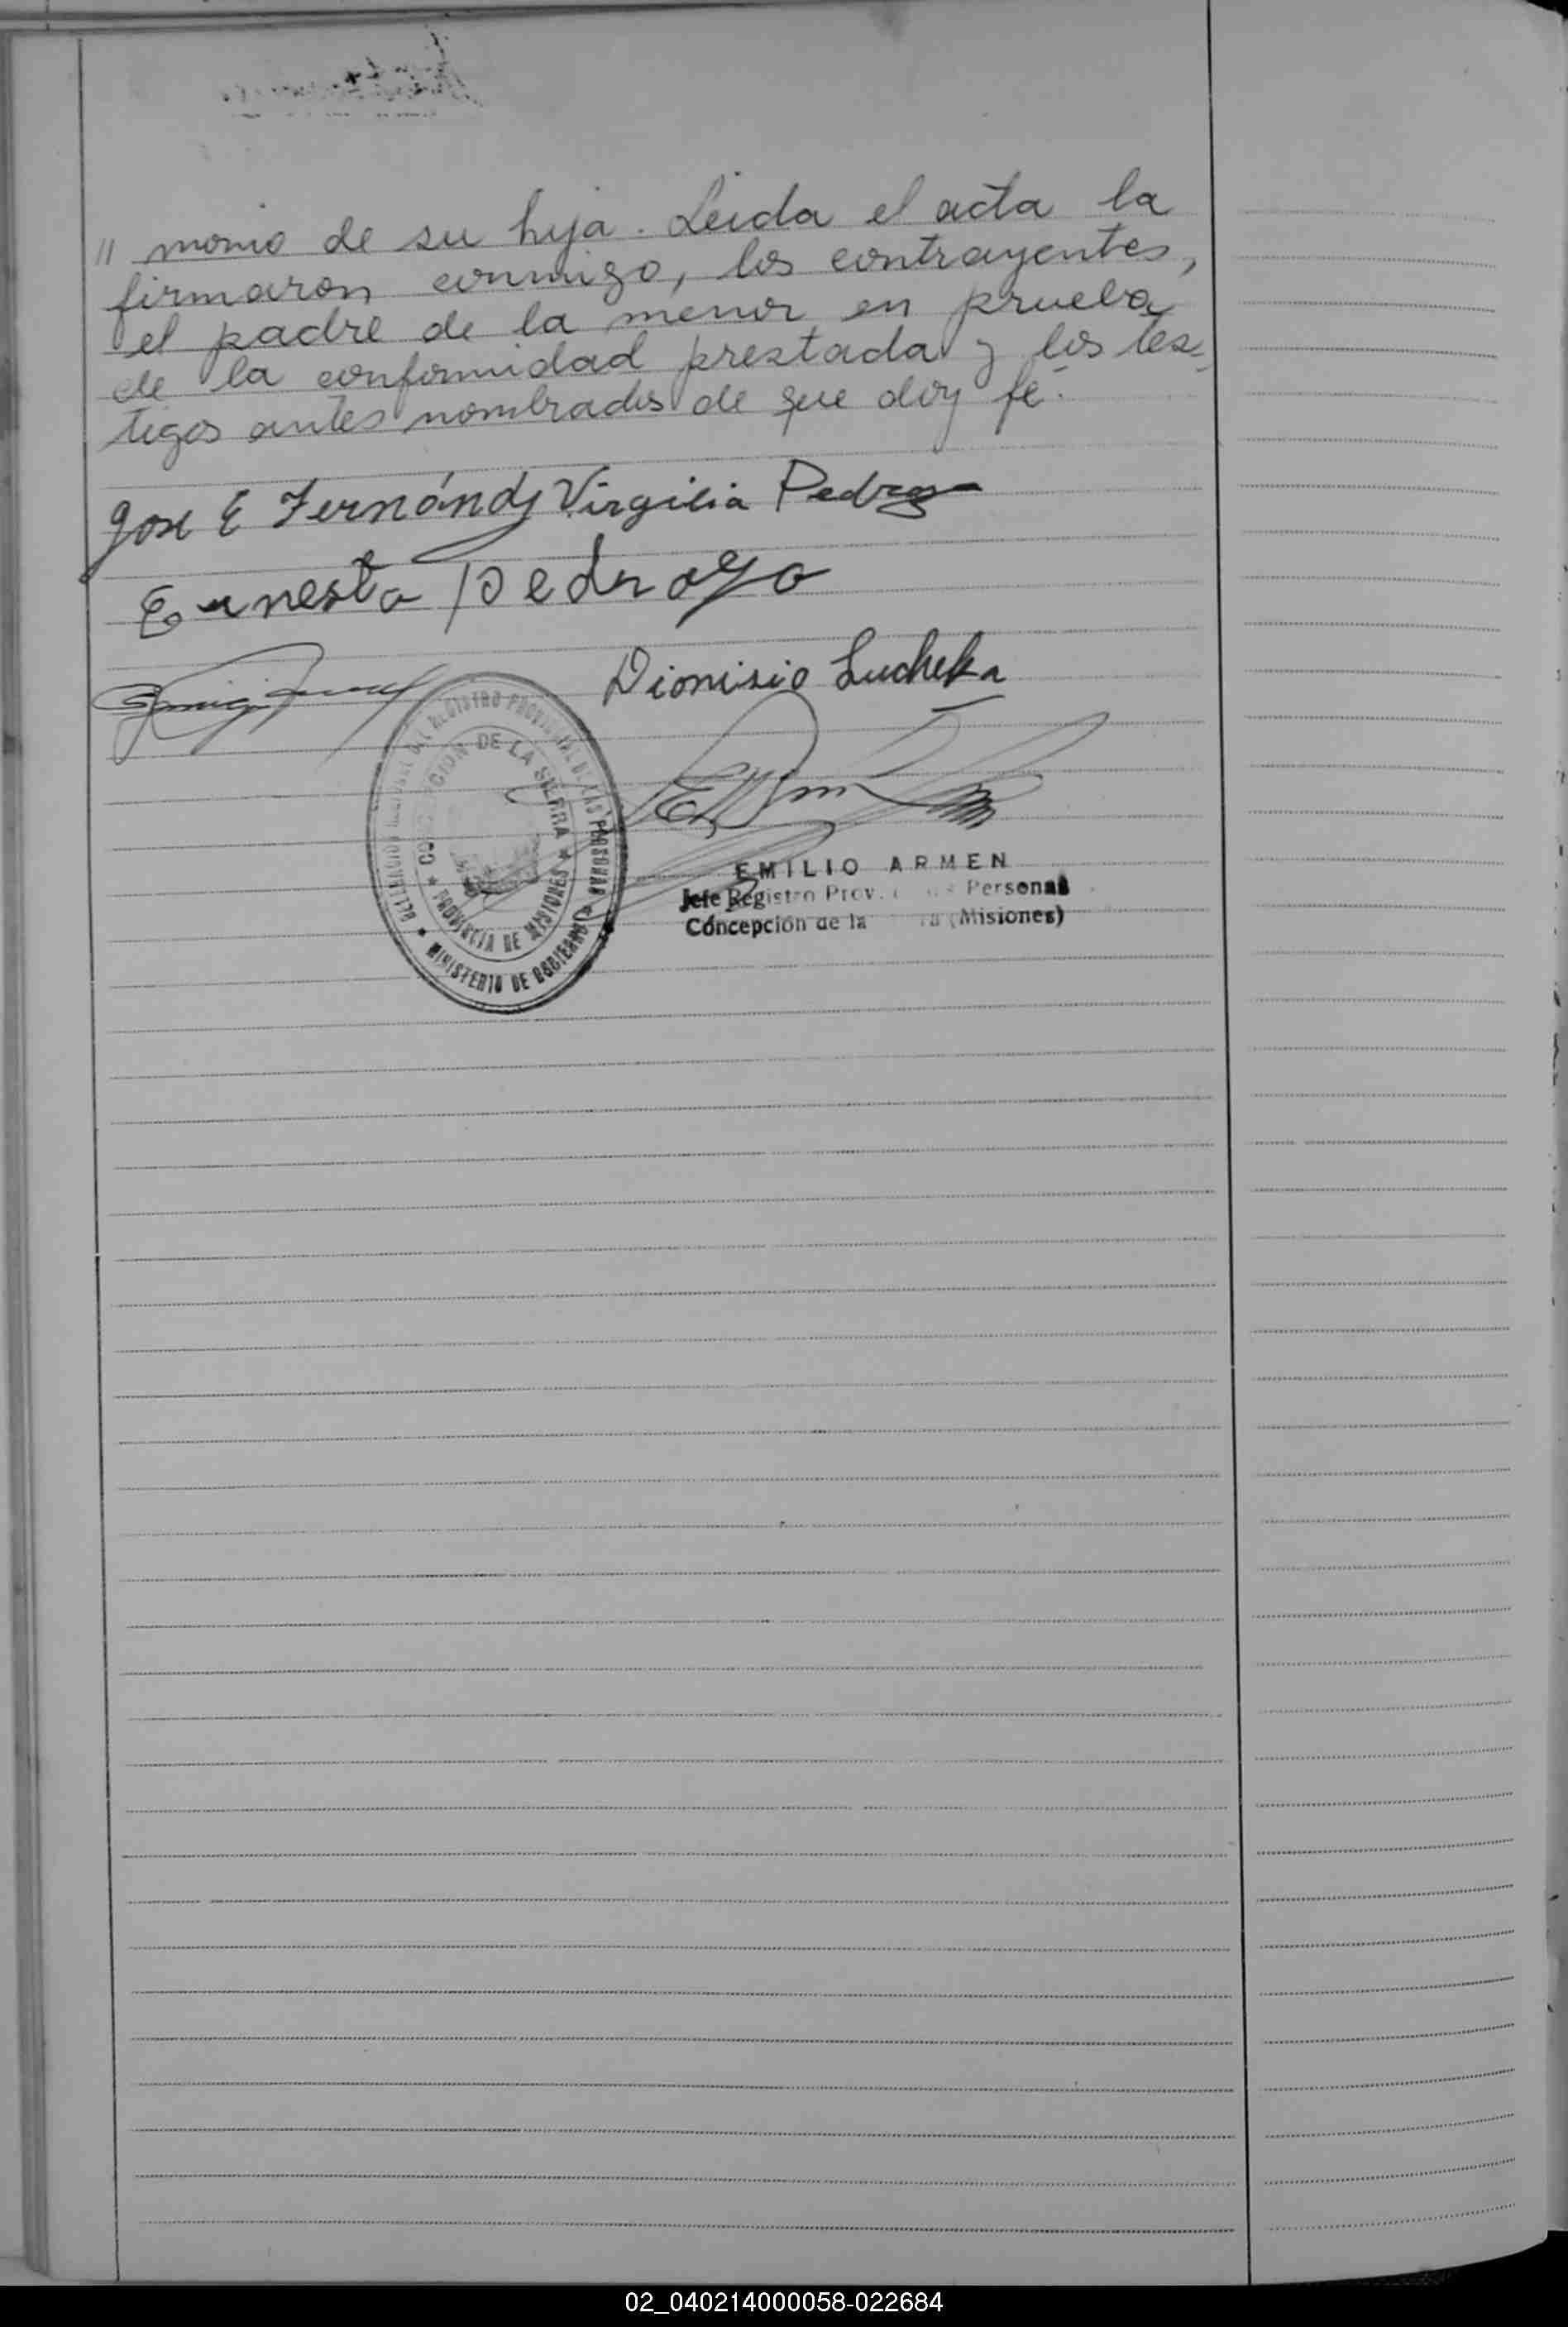 " monio de su hija. Leida el acta la
firmaron conmigo, los contrayentes,
el padre de la menor en prueba
de la conformidad prestada y los tes-
tigos antes nombrados de que doy fé.
Jose E Fernández Virgilia Pedrozo
Ernesto Pedrozo
Dionisio Lucheka
DEL REGISTRO PROVINCIAL DE LAS PERSONAS
CONCEPCION DE LA SIERRA
PROVINCIA DE MISIONES
MINISTERIO DE GOBIERNO
EMILIO ARMEN
Jefe Registro Prov. Personas
Concepción de la (Misiones)
02_040214000058-022684